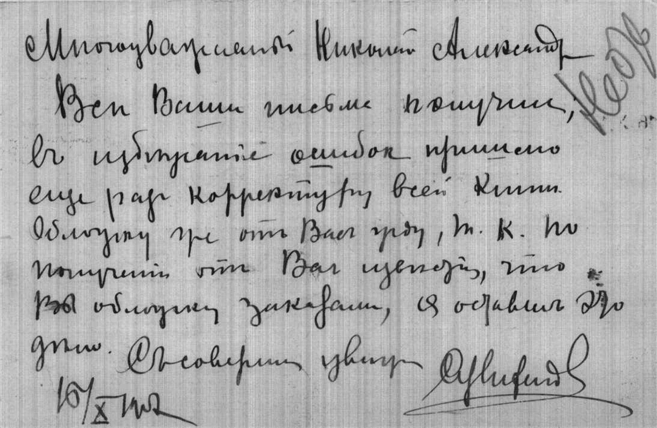 Многоуважаемый Николай Александр
Все Ваши письма получил,
въ избѣжаніе ошибок пришлю
еще разъ корректуру всей книги.
Обложку же отъ Васъ жду, т. к. по
полученіи отъ Вас , что
Вы обложку заказали, я оставилъ это
дѣло. Съ соверш уваж
16/X 1902